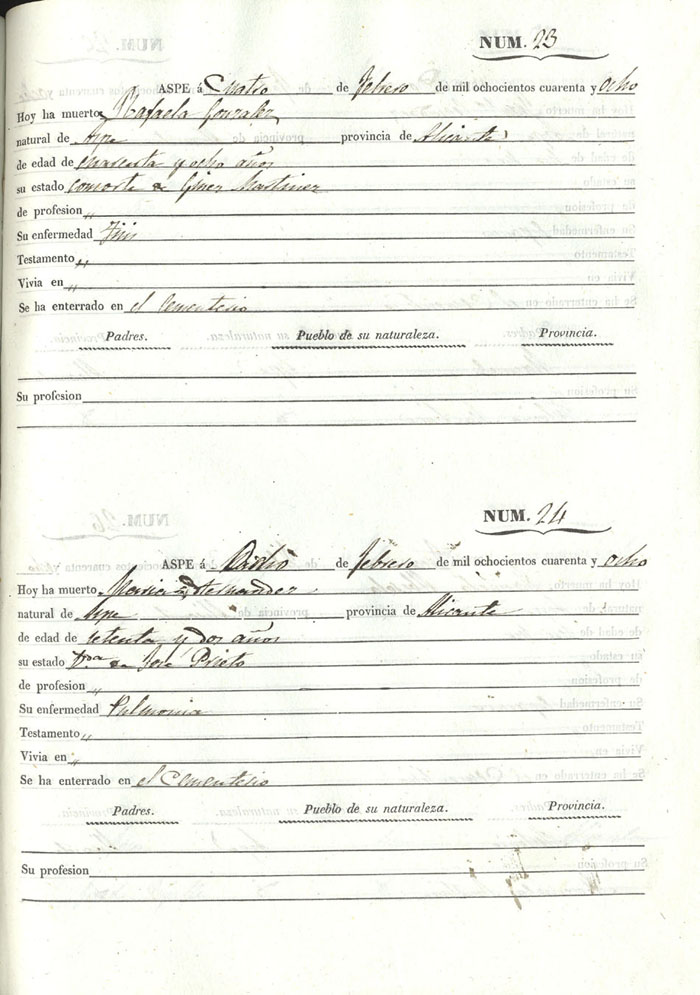 NUM. 23
ASPE á Cuatro de febrero de mil ochocientos cuarenta y ocho
Hoy ha muerto Rafaela Gonzalez
natural de Aspe provincia de Alicante
de edad de cuarenta y ocho años
su estado consorte de Giner Martinez
de profesion "
Su enfermedad Tisis
Testamento "
Vivia en "
Se ha enterrado en el Cementerio
Padres. Pueblo de su naturaleza. Provincia.
Su profesion
NUM. 24
ASPE á Ocho de febrero de mil ochocientos cuarenta y ocho
Hoy ha muerto Maria Hernandez
natural de Aspe provincia de Alicante
de edad de setenta y dos años
su estado Vda de José Prieto
de profesion "
Su enfermedad Pulmonia
Testamento "
Vivia en "
Se ha enterrado en el Cementerio
Padres. Pueblo de su naturaleza. Provincia.
Su profesion